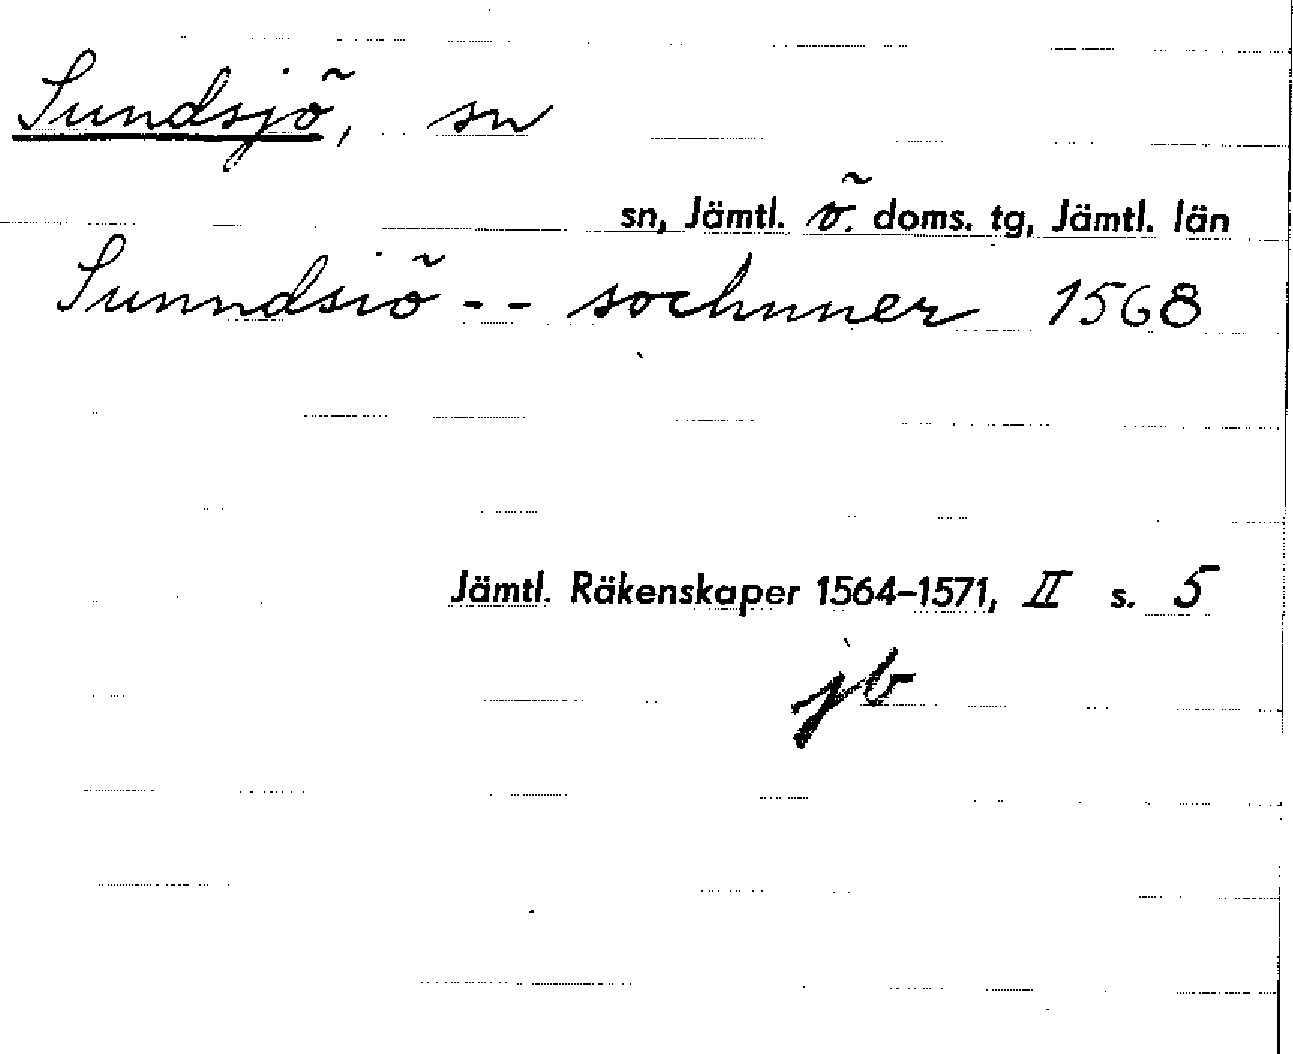 Sundsjö, sn
sn, Jämtl. ö. doms. tg, Jämtl. län
Sunndsiö -- sochnner 1568
Jämtl. Räkenskaper 1564–1571, II s. 5
jb